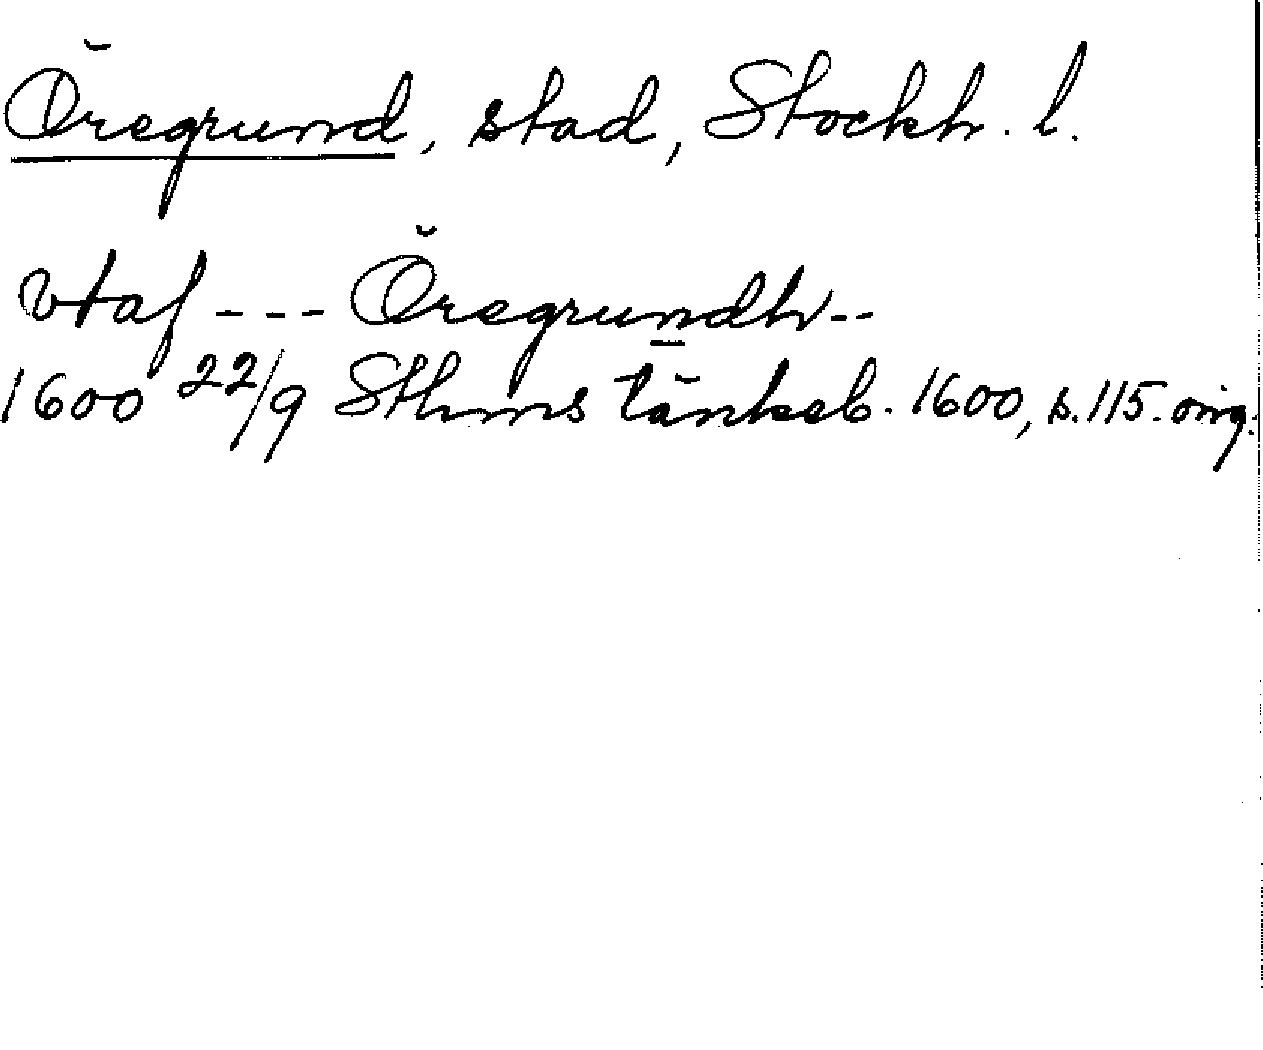 Öregrund, stad, Stockh. l.
vtaf --- Öregrundh--
1600 22/9 Sthms tänkeb. 1600, s. 115. orig.